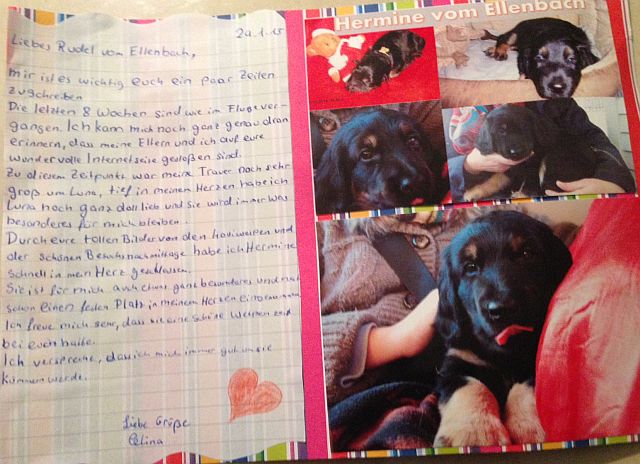 29.1.15
Liebes Rudel vom Ellenbach,
mir ist es wichtig euch ein paar Zeilen
zu schreiben.
Die letzten 8 Wochen sind wie im Fluge ver-
gangen. Ich kann mich noch ganz genau dran
erinnern, dass meine Eltern und ich auf eure
wundervolle Internetseite gestoßen sind.
Zu diesem Zeitpunkt war meine Trauer noch sehr
groß um Luna, tief in meinen Herzen habe ich
Luna noch ganz doll lieb und sie wird immer was
besonderes für mich bleiben.
Durch eure tollen Bilder von den Hoviwelpen und
der schönen Besuchsnachmittage habe ich Hermine
schnell in mein Herz geschlossen.
Sie ist für mich auch etwas ganz besonderes und hat
schon einen festen Platz in meinem Herzen eingenommen.
Ich freue mich sehr, dass sie eine schöne Welpenzeit
bei euch hatte.
Ich verspreche, dass ich mich immer gut um sie
kümmern werde.
Liebe Grüße
Celina
Hermine vom Ellenbach